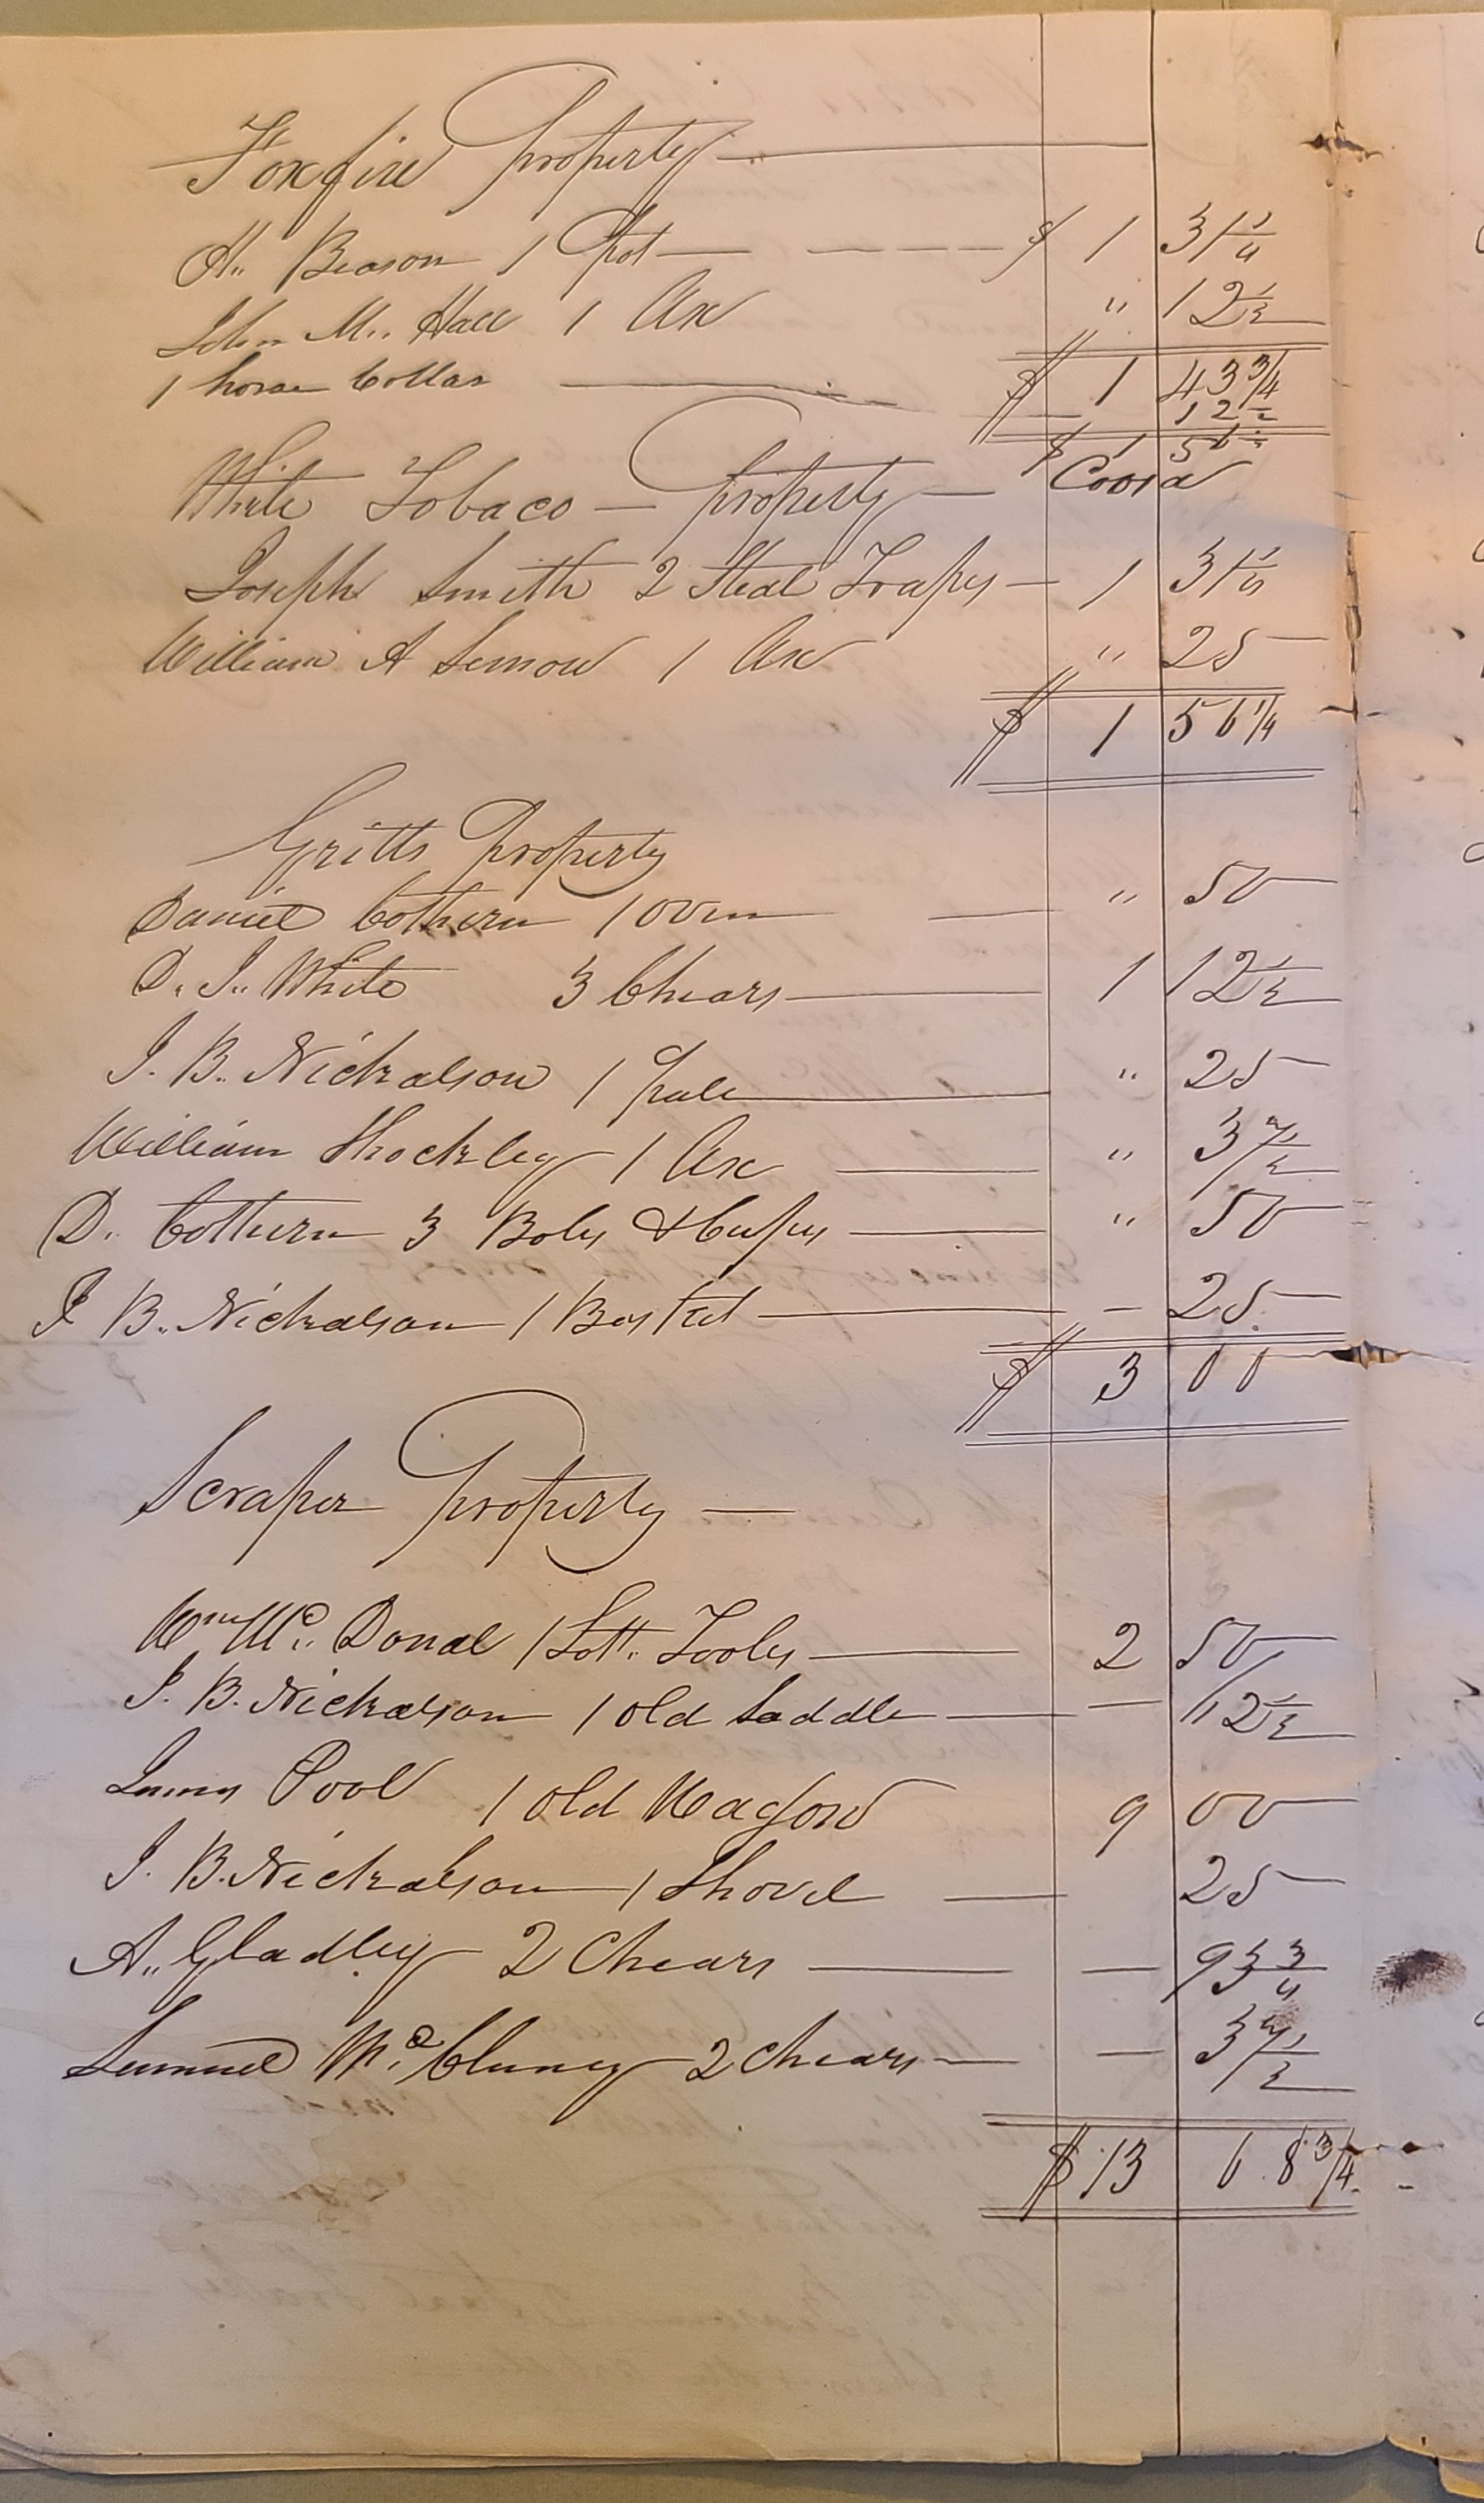 Foxfire Property
H. Beason 1 Pot $ 1 31 1/4
John M. Hall 1 Ax " 12 1/2
$ 1 43 3/4
1 horse Collar 12 1/2
$ 1 56 1/4
White Tobaco Property Coosa
Joseph Smith 2 Steal Traps 1 31 1/4
William A Lemow 1 Ax " 25
$ 1 56 1/4
Gritts Property
Daniel Cothern 1 oven " 50
D. J. White 3 Chears 1 12 1/2
J. B. Nickalson 1 pale " 25
William Shockley 1 Ax " 37 1/2
D. Cothern 3 Boles & Cups " 50
J B. Nickalson 1 Basket - 25
$ 3 00
Scraper Property
Wm Mc. Donal 1 Lott. Tools 2 50
J. B. Nickalson 1 old Saddle - 12 1/2
Pool 1 old Wagon 9 00
J. B. Nickalson 1 Shovel 25
A. Gladley 2 Chears - 93 3/4
Samuel Mc. Cluney 2 Chears - 37 1/2
$ 13 68 3/4